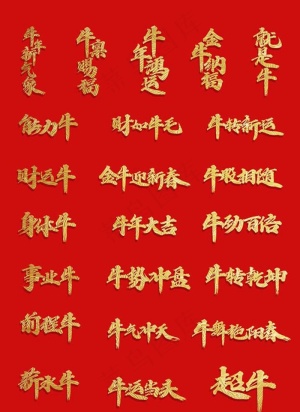 牛年新气象
牛气赐福
牛年鸿运
金牛纳福
就是牛
能力牛
财如牛毛
牛转新运
财运牛
金牛迎新春
牛股相随
身体牛
牛年大吉
牛劲百倍
事业牛
牛势冲盘
牛转乾坤
前程牛
牛气冲天
薪水牛
牛运当头
超牛